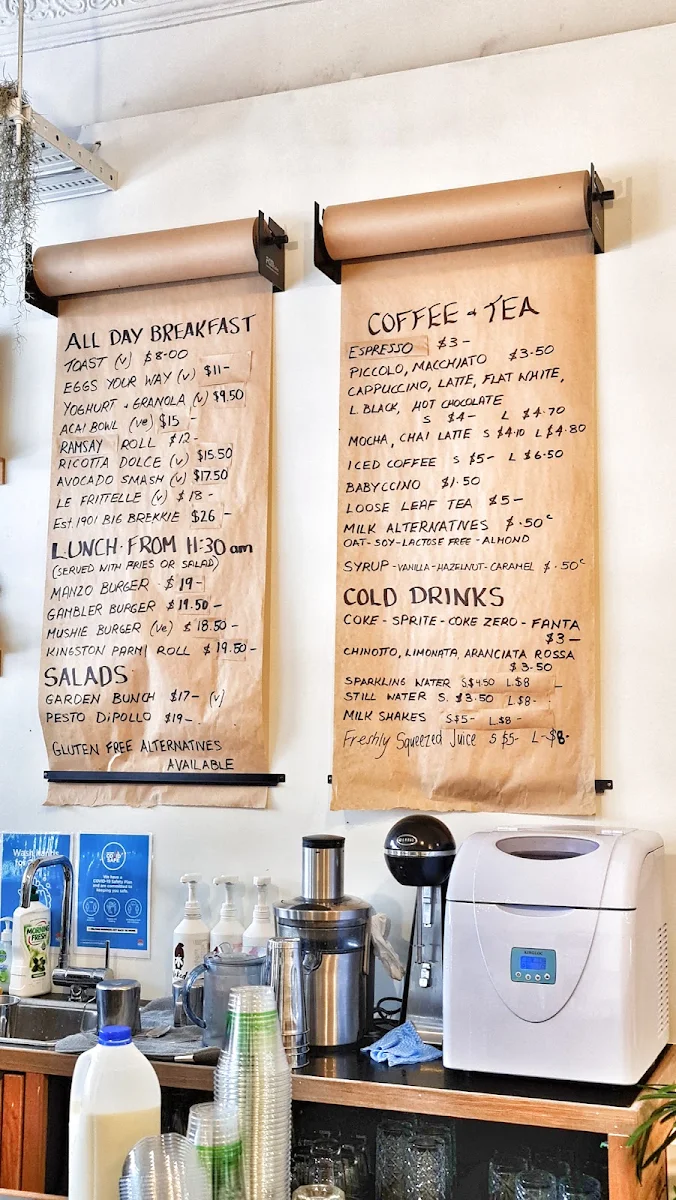 ALL DAY BREAKFAST
TOAST (V) $8-00
EGGS YOUR WAY (V) $11-
YOGHURT + GRANOLA (V) $9.50
ACAI BOWL (VE) $15 -
RAMSAY ROLL $12-
RICOTTA DOLCE (V) $15.50
AVOCADO SMASH (V) $17.50
LE FRITTELLE (V) $18-
EST. 1901 BIG BREKKIE $26 -
LUNCH-FROM 11:30 am
(SERVED WITH FRIES OR SALAD)
MANZO BURGER $19-
GAMBLER BURGER $19.50-
MUSHIE BURGER (VE) $18.50-
KINGSTON PARMI ROLL $19.50-
SALADS
GARDEN BUNCH $17- (V)
PESTO DIPOLLO $19-
GLUTEN FREE ALTERNATIVES
AVAILABLE
COFFEE + TEA
ESPRESSO $3-
PICCOLO, MACCHIATO $3.50
CAPPUCCINO, LATTE, FLAT WHITE,
L.BLACK, HOT CHOCOLATE
S $4- L $4.70
MOCHA, CHAI LATTE S $4.10 L $4.80
ICED COFFEE S $5- L $6.50
BABYCCINO $1.50
LOOSE LEAF TEA $5-
MILK ALTERNATIVES $.50c
OAT-SOY-LACTOSE FREE-ALMOND
SYRUP-VANILLA-HAZELNUT-CARAMEL $.50c
COLD DRINKS
COKE - SPRITE - COKE ZERO - FANTA
$3-
CHINOTTO, LIMONATA, ARANCIATA ROSSA
$3.50
SPARKLING WATER S.$4.50 L.$8 -
STILL WATER S. $3.50 L.$8-
MILK SHAKES S$5- L.$8-
Freshly Squeezed Juice S $5- L-$8-
Wash hands
COVID SAFE
We have a
COVID-19 Safety Plan
and are committed to
keeping you safe
MORNING
FRESH